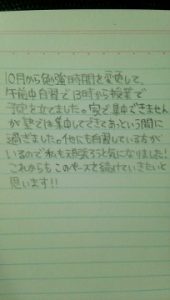 10月から勉強時間を変更して、
午前中自習で13時から授業で
予定を立てました。家で集中できません
が塾では集中してできてあっという間に
過ぎました。他にも自習している方が
いるので私も頑張ろうと気になりました!
これからもこのペースを続けていきたいと
思います!!